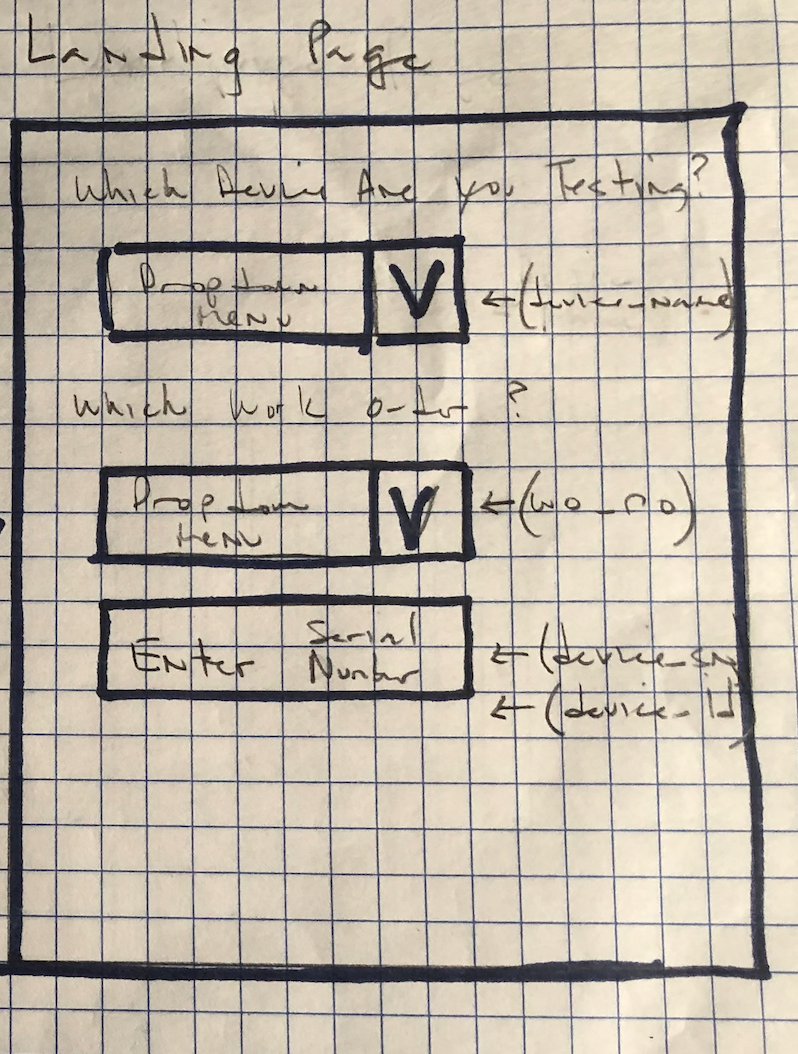 Landing Page
Which Device Are you Testing?
Dropdown
Menu
V
←(device_name)
Which Work Order ?
Dropdown
Menu
V
←(wo_no)
Enter Serial
Number
←(device_sn)
←(device_id)